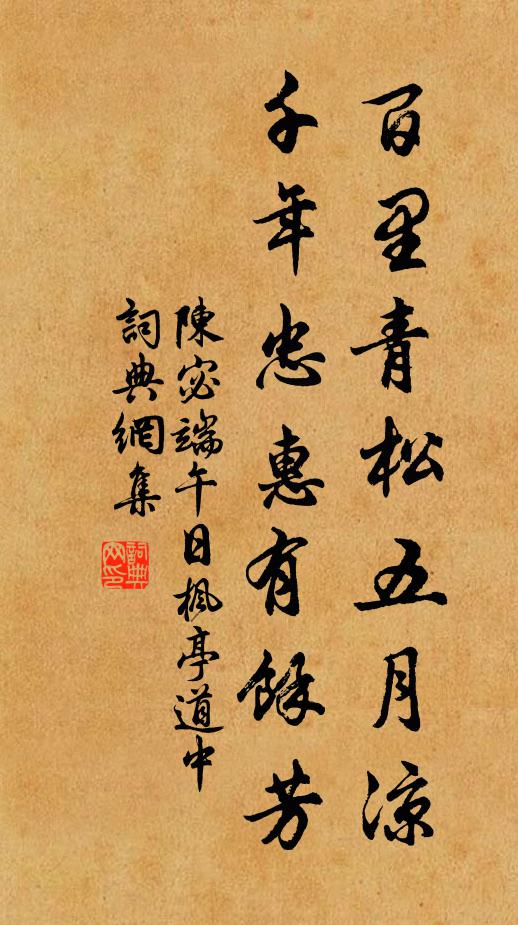 百里青松五月凉
千年忠惠有餘芳
陳宓端午日楓亭道中
詞典網集
詞典網印